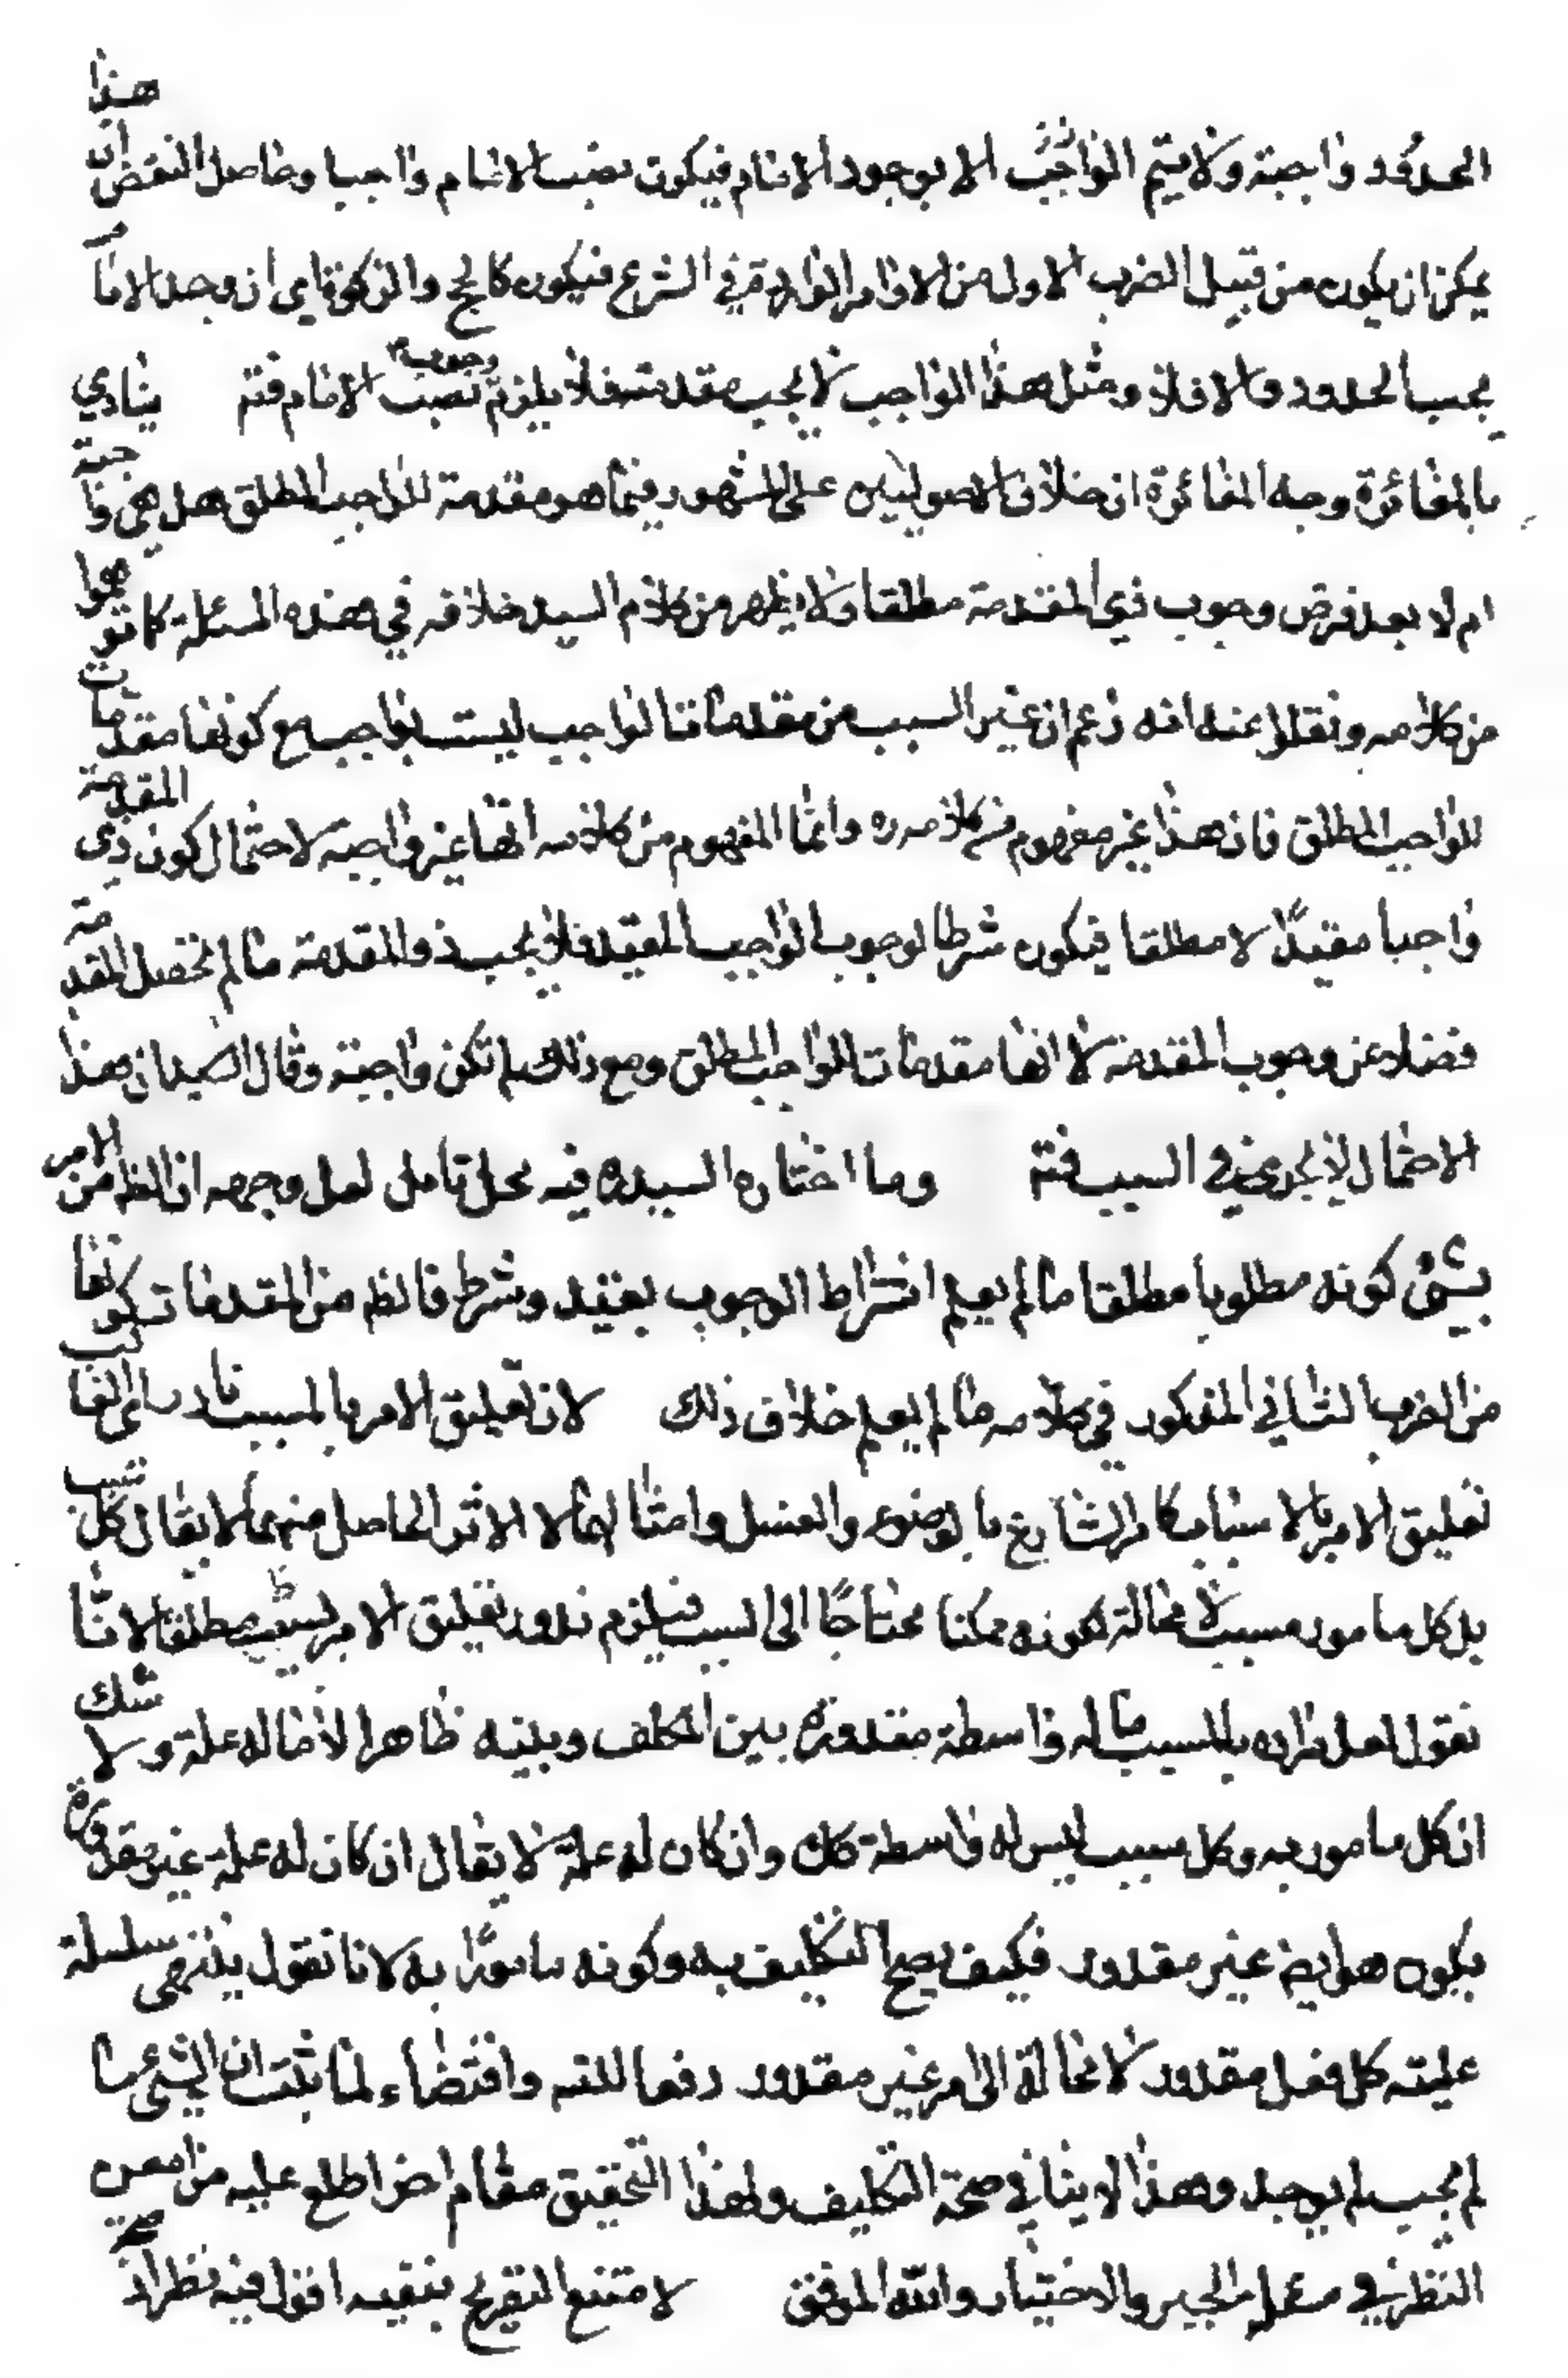 الحدود واجبة ولا يتم الواجب الا بوجود الامام فيكون نصب الامام واجبا وحاصل النقض ان هذا
يمكن ان يكون من قبيل الضرب الاول من الاوامر الواردة في الشرع فيكون كالحج والزكوة اي ان وجد الامام
يجب الحدود والا فلا ومثل هذا الواجب لا يجب مقدمته فلا يلزم وجوب نصب الامام فتم ينادي
بالمغائرة وجه المغائرة ان خلاف الاصوليين على المشهور فيما هو مقدمة للواجب المطلق هل هي واجبة
ام لا بعد فرض وجوب ذي المقدمة مطلقا ولا يظهر من كلام السيد خلافه في هذه المسئلة كما توهموا
من كلامه ونقلوا عنه انه زعم ان غير السبب من مقدمات الواجب ليست بواجب مع كونها مقدمات
للواجب المطلق فان هذا غير مفهوم من كلامه ره وانما المفهوم من كلامه انها غير واجبة لاحتمال كون ذي المقدمة
واجبا مقيدًا لا مطلقا فيكون شرطا لوجوب الواجب المقيد فلا يجب ذو المقدمة ما لم تحصل المقدمة
فضلا عن وجوب المقدمة لا انها مقدمات الواجب المطلق ومع ذلك لم تكن واجبة وقال السيد ان هذا
الاحتمال لا يجري في السبب فتم وما اختاره السيد ره فيه محل تامل لعل وجهه ان الظ من الامر
بشئ كونه مطلوبا مطلقا ما لم يعلم اشتراط الوجوب بقيد وشرط فالظ من المقدمات كونها
من الضرب الثاني المذكور في كلامه ما لم يعلم خلاف ذلك لان تعليق الامر بالمسبب نادر اي الغالب
تعليق الامر بالاسباب كامر الشارع بالوضوء والغسل وامثالهما لا الاثر الحاصل منهما لا يقال كل سبب
بل كل مامور مسبب لا محالة لكونه ممكنا محتاجًا الى السبب فيلزم ندور تعليق الامر مطلقا لانا
نقول لعل مراده بالمسبب ما له واسطة مقدورة بين المكلف وبينه ظاهرا لا ما له علة ولا شك
ان كل مامور به وكل سبب ليس له واسطة كك وان كان له علة لا يقال ان كان له علة غير مقدورة
يكون هو ايض غير مقدور فكيف يصح التكليف به وكونه مامورًا به لانا نقول ينتهى سلسلة
علية كل فعل مقدور لا محالة الى امر غير مقدور دفعا للتس واقتضاء لما ثبت ان الشئ ما
لم يجب لم يوجد وهذا لا ينافي صحة التكليف ولهذا التحقيق مقام اخر اطلع عليه من امعن
النظر في مسئلة الجبر والاختيار والله الموفق لامتنع التصريح بنفيه اقول فيه نظر اذ صحة